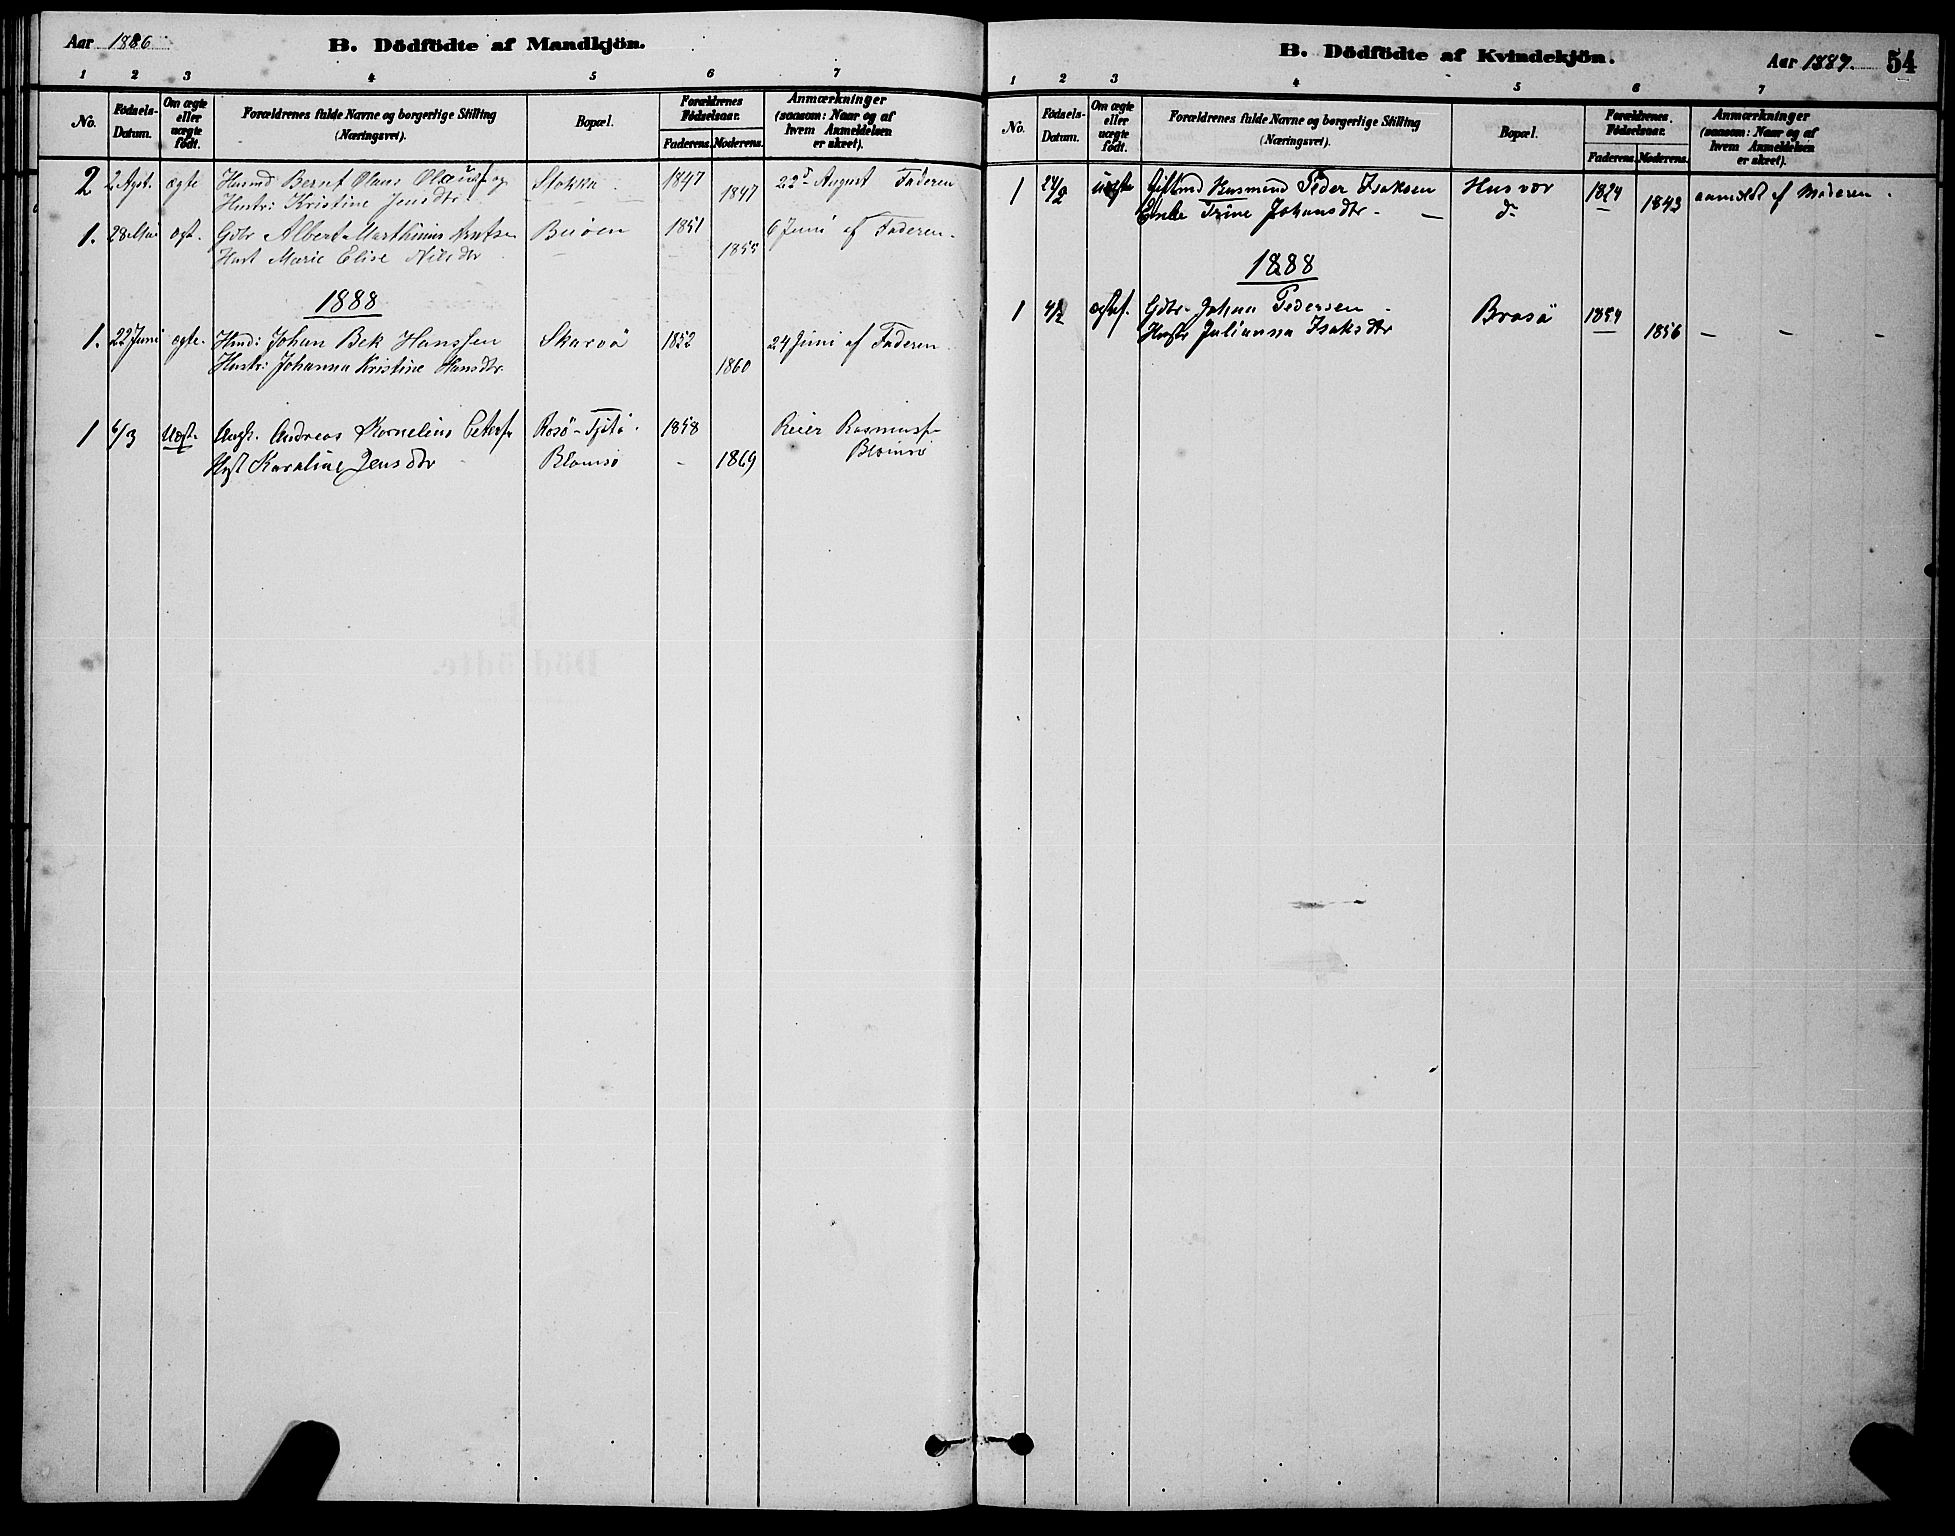 Aar 1886
B. Dödfödte af Mandkjön.
1 2 3 4 5 6 7
No. Födsels-Datum. Om ægte eller uægte födt. Forældrenes fulde Navne og borgerlige Stilling (Næringsvei). Bopæl. Forældrenes Födselsaar. Faderens. Moderens. Anmærkninger (saasom: Naar og af hvem Anmeldelsen er skeet).
2 2 Agst. ægte Husmd Bernt Olaus Olausf og Stokka 1847 22d August Faderen
Hustr: Kristine Jensdtr 1847
1. 28 Mai ægt. Gdbr Albert Marthinus Buöen 1851 6 Juni af Faderen
Hust Marie Elise Nilsdtr 1855
1888
1. 22 Juni ægte. Johan Bek Hanssen Skarvö 1852 24 Juni af Faderen
Hustr: Johanna Kristine Hansdtr. 1860
1 6/3 Uægt. Ungk. Andreas Kornelius Petersf Rosö - Tjötö 1858 Reier Rasmusf
Karoline Jensdtr Blomsö - 1869 Blomsö
B. Dödfödte af Kvindekjön.
Aar 1887. 54
1 2 3 4 5 6 7
No. Födsels-Datum. Om ægte eller uægte födt. Forældrenes fulde Navne og borgerlige Stilling (Næringsvei). Bopæl. Forældrenes Födselsaar. Faderens. Moderens. Anmærkninger (saasom: Naar og af hvem Anmeldelsen er skeet).
1 24/2 uægte Gift Husmand Peder Isaksen Husvær 1824 anmeldt af Moderen.
Enke Trine Johansdtr. - do 1843
1888
1 4/2 Gdbr. Johan Pedersen Brasö 1854
Hustr Julianna Isaksdtr 1856 - - -